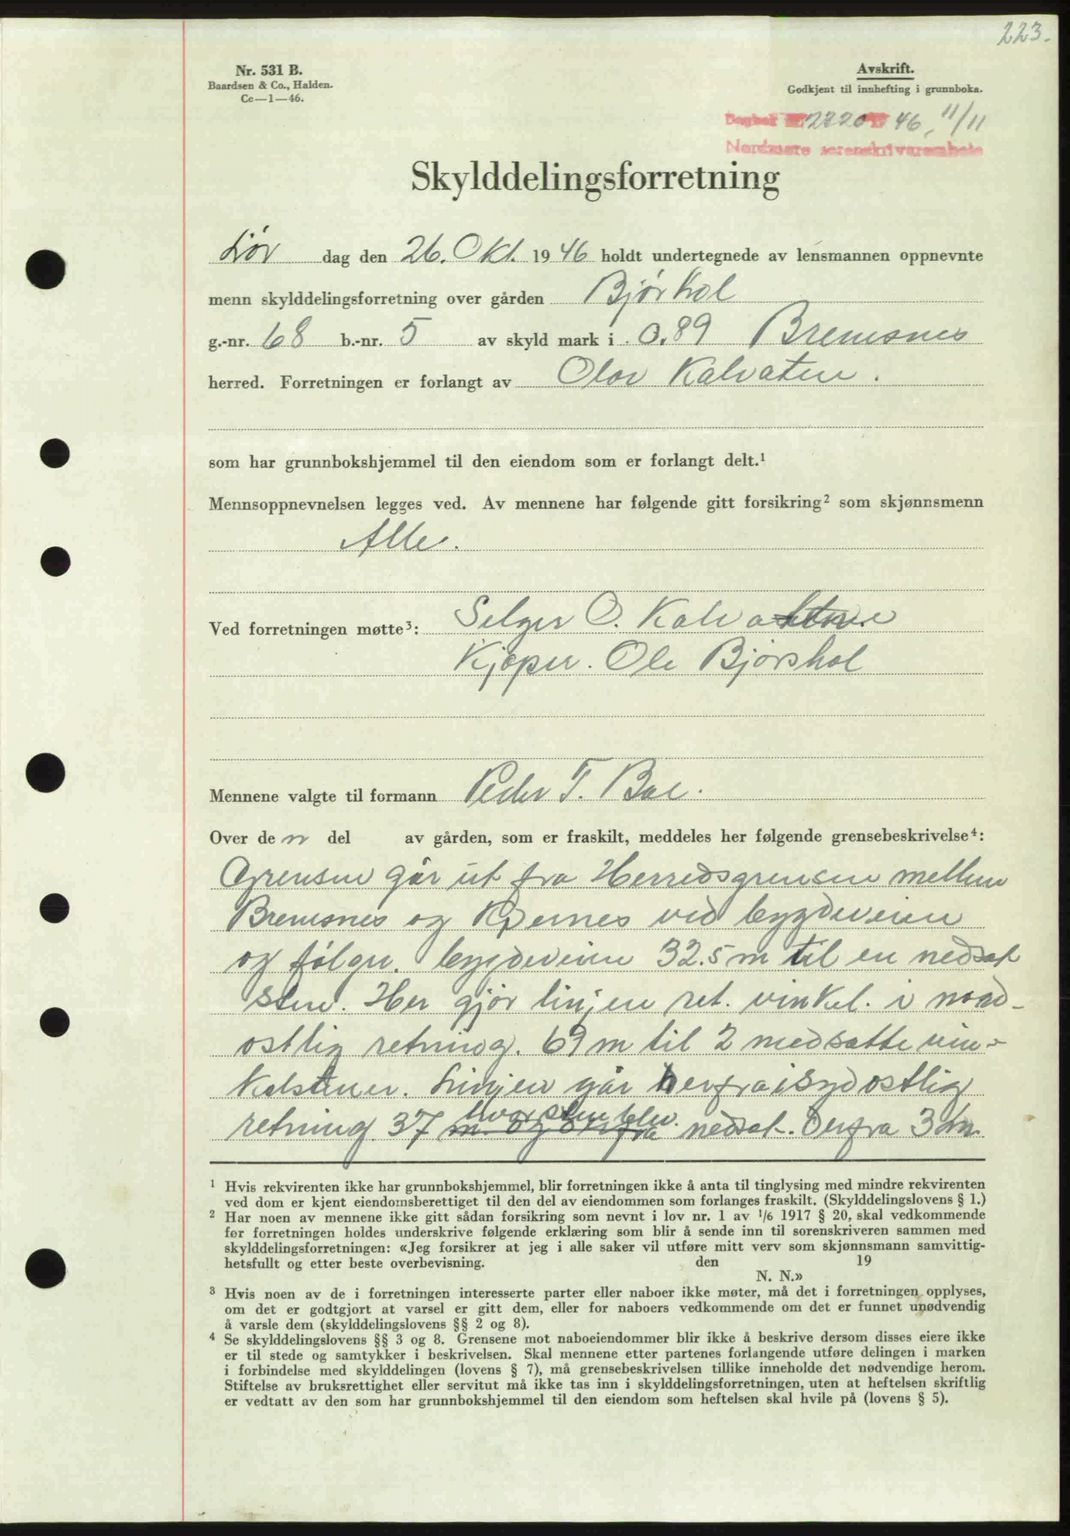 223.
Nr. 531 B.
Baardsen & Co., Halden.
Cc—1—46.
Avskrift.
Godkjent til innhefting i grunnboka.
Dagbok 2220 46, 11/11
Nordmøre sorenskriverembete
Skylddelingsforretning
Lør dag den 26. Okt. 1946 holdt undertegnede av lensmannen oppnevnte
menn skylddelingsforretning over gården Bjørkol
g.-nr. 68 b.-nr. 5 av skyld mark i 0.89 Bremsnes
herred. Forretningen er forlangt av Olav Kalvaten.
som har grunnbokshjemmel til den eiendom som er forlangt delt.¹
Mennsoppnevnelsen legges ved. Av mennene har følgende gitt forsikring² som skjønnsmenn
Alle.
Ved forretningen møtte³: Selger O. Kalva
Kjøper. Ole Bjørshol
Mennene valgte til formann Peder T. Boe.
Over de n del av gården, som er fraskilt, meddeles her følgende grensebeskrivelse⁴:
Grensen går ut fra Herredsgrensen mellem
Bremsnes og Kvernes ved bygdeveien
og følger. bygdeveien 32.5 m til en nedsat
sten. Her gjør linjen ret. vinkel. i nord-
ostlig retning. 69 m til 2 nedsatte vin-
kelstener. Linjen går herfra i sydostlig
retning 37 m. og derfra hvor sten blev. nedsat. Derfra 3
¹ Hvis rekvirenten ikke har grunnbokshjemmel, blir forretningen ikke å anta til tinglysing med mindre rekvirenten
ved dom er kjent eiendomsberettiget til den del av eiendommen som forlanges fraskilt. (Skylddelingslovens § 1.)
² Har noen av mennene ikke gitt sådan forsikring som nevnt i lov nr. 1 av 1/6 1917 § 20, skal vedkommende
før forretningen holdes underskrive følgende erklæring som blir å sende inn til sorenskriveren sammen med
skylddelingsforretningen: «Jeg forsikrer at jeg i alle saker vil utføre mitt verv som skjønnsmann samvittig-
hetsfullt og etter beste overbevisning. den 19
N. N.»
³ Hvis noen av de i forretningen interesserte parter eller naboer ikke møter, må det i forretningen opplyses,
om det er godtgjort at varsel er gitt dem, eller for naboers vedkommende om det er funnet unødvendig
å varsle dem (skylddelingslovens §§ 2 og 8).
⁴ Se skylddelingslovens §§ 3 og 8. Grensene mot naboeiendommer blir ikke å beskrive dersom disses eiere ikke
er til stede og samtykker i beskrivelsen. Skal mennene etter partenes forlangende utføre delingen i marken
i forbindelse med skylddelingen (lovens § 7), må grensebeskrivelsen tillike inneholde det nødvendige herom.
Stiftelse av bruksrettighet eller servitut må ikke tas inn i skylddelingsforretningen, uten at heftelsen skriftlig
er vedtatt av den som har grunnbokshjemmel til den eiendom som heftelsen skal hvile på (lovens § 5).